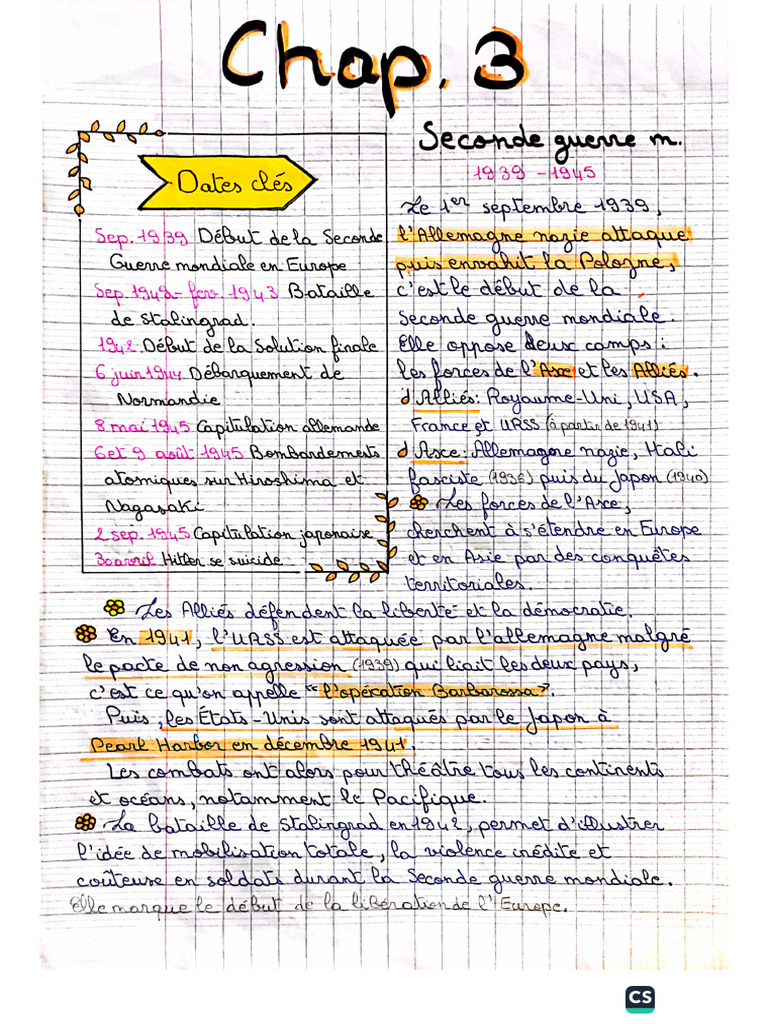 Chap. 3
Dates clés
Sep. 1939 Début de la Seconde
Guerre mondiale en Europe
Sep. 1942- fev. 1943 Bataille
de Stalingrad.
1942 Début de la Solution finale
6 juin 1944 Débarquement de
Normandie
8 mai 1945 Capitulation allemande
6 et 9 août 1945 Bombardements
atomiques sur Hiroshima et
Nagasaki
2 sep. 1945 Capitulation japonaise
30 avril Hitler se suicide
Seconde guerre m.
1939 - 1945
Le 1er septembre 1939,
l'Allemagne nazie attaque
puis envahit la Pologne,
c'est le début de la
Seconde guerre mondiale.
Elle oppose deux camps :
les forces de l'Axe et les Alliés.
Alliés: Royaume-Uni, USA,
France et URSS (à partir de 1941)
Axe: Allemagne nazie, Itali
fasciste (1936) puis du Japon (1940)
Les forces de l'Axe,
cherchent à s'étendre en Europe
et en Asie par des conquêtes
territoriales.
Les Alliés défendent la liberté et la démocratie.
En 1941, l'URSS est attaquée par l'allemagne malgré
le pacte de non agression (1939) qui liait les deux pays,
c'est ce qu'on appelle "l'opération Barbarossa".
Puis, les États-Unis sont attaqués par le Japon à
Pearl Harbor en décembre 1941.
Les combats ont alors pour théâtre tous les continents
et océans, notamment le Pacifique.
La bataille de Stalingrad en 1942, permet d'illustrer
l'idée de mobilisation totale, la violence inédite et
coûteuse en soldats durant la Seconde guerre mondiale.
Elle marque le début de la libération de l'Europe.
CS